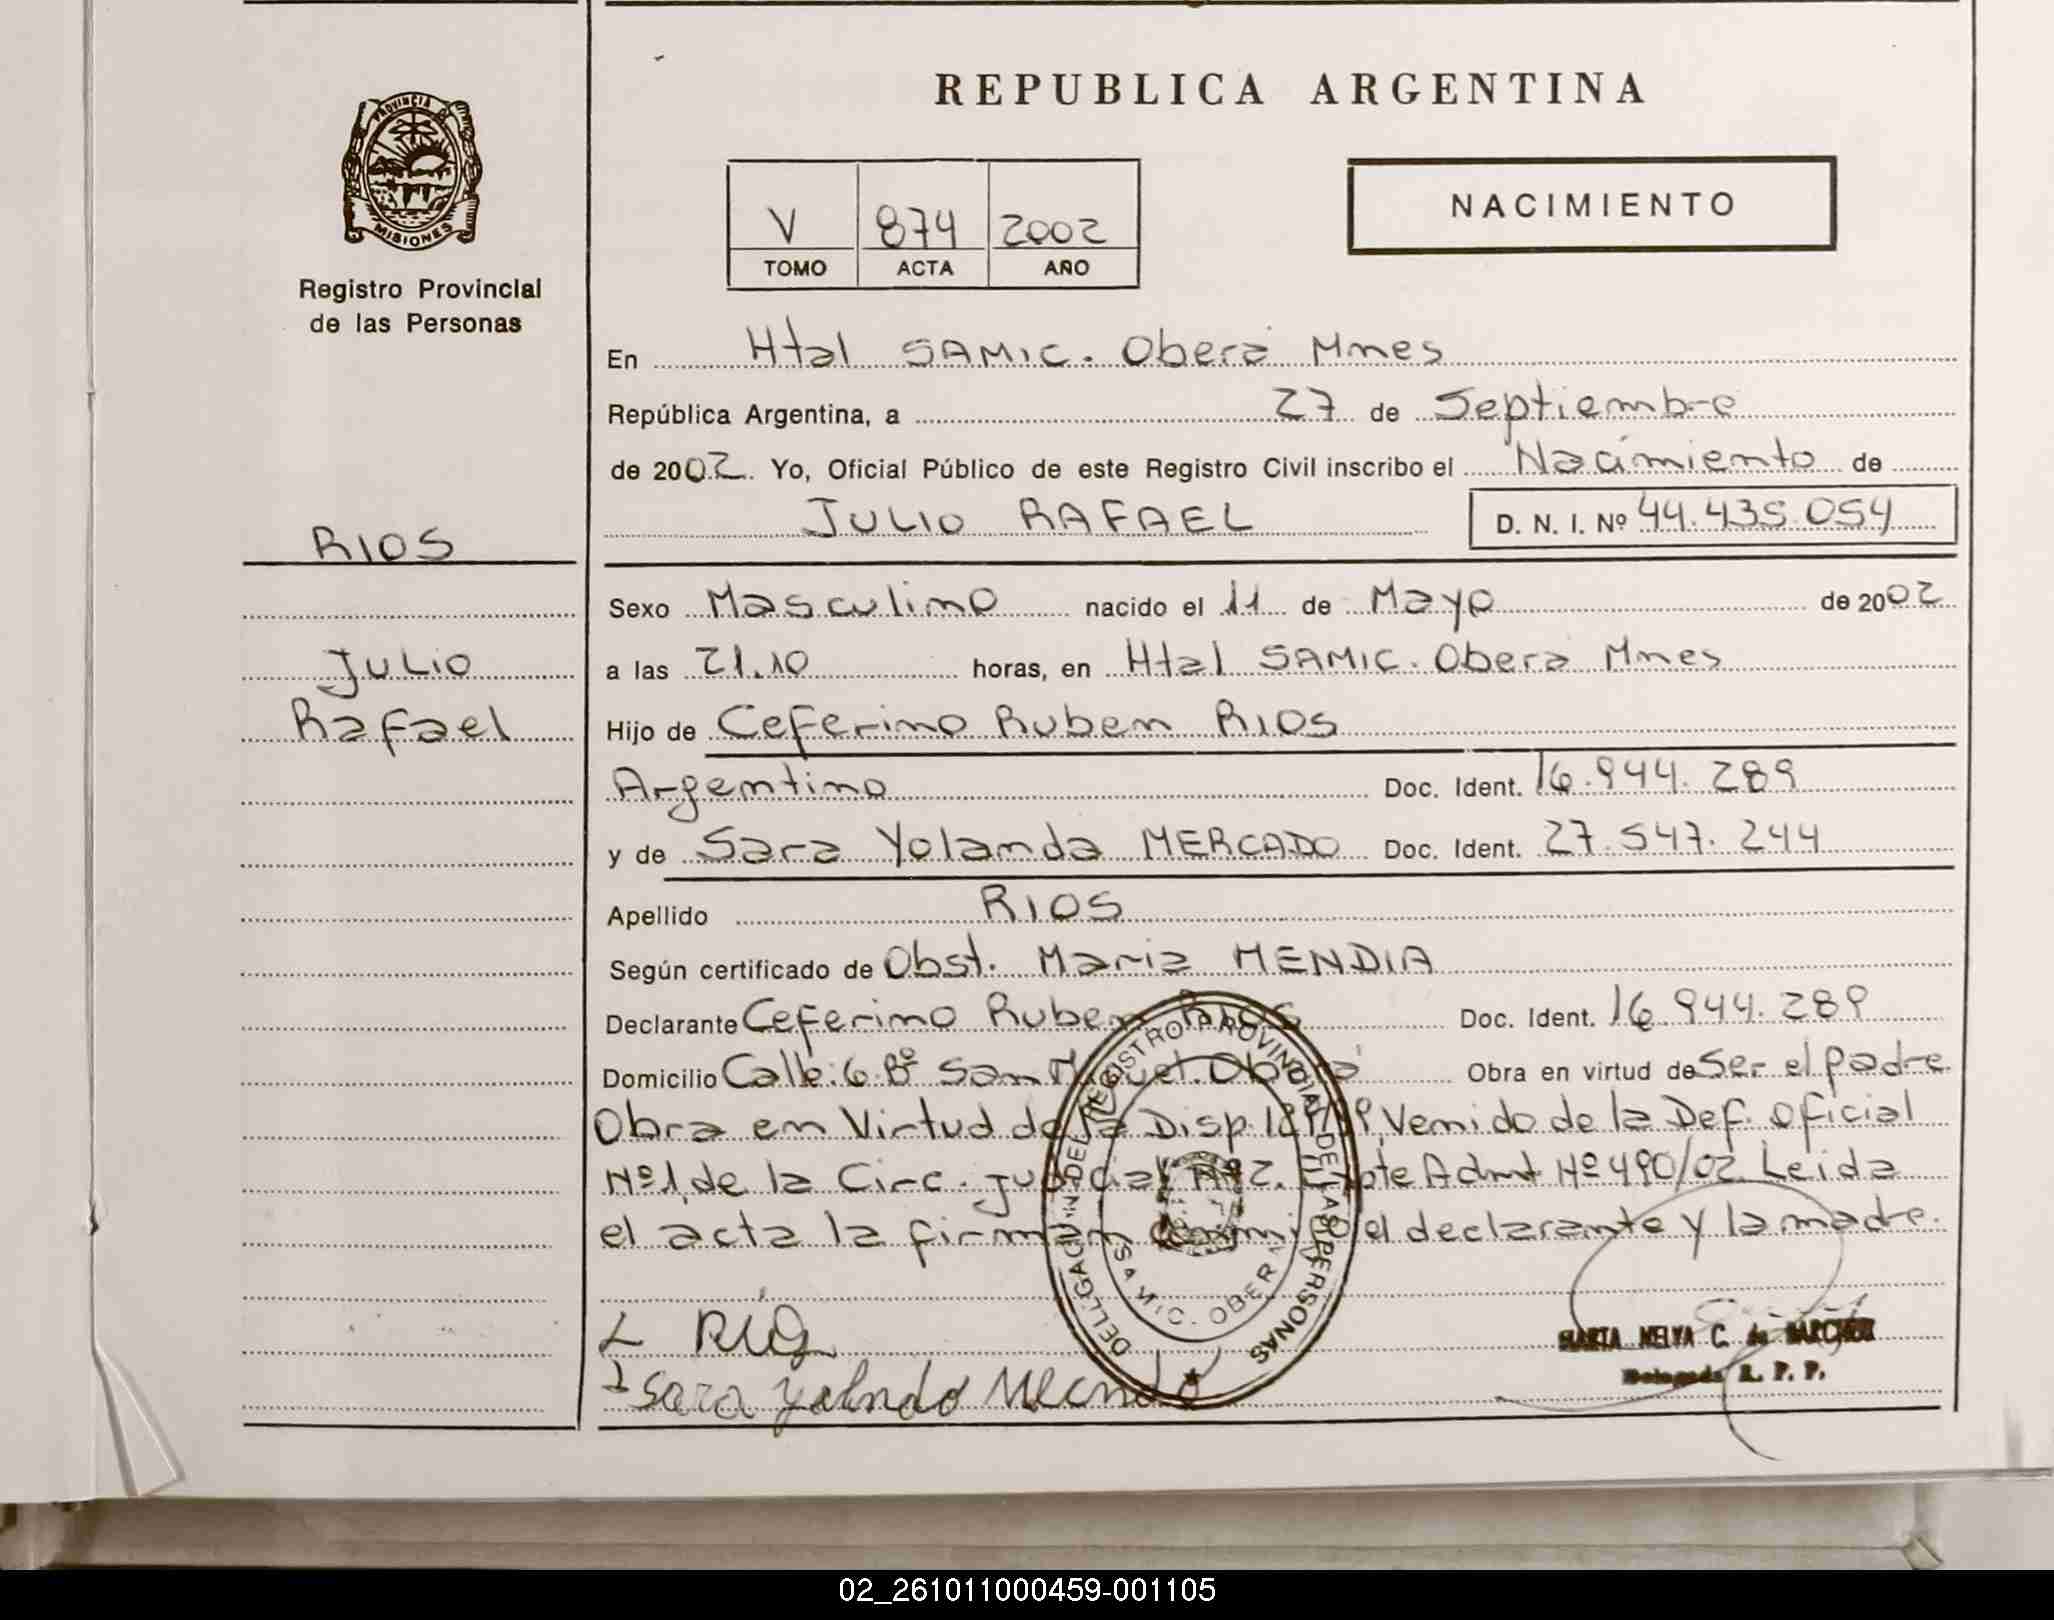 REPUBLICA ARGENTINA
PROVINCIA
MISIONES
Registro Provincial
de las Personas
V 874 2002
TOMO ACTA AÑO
NACIMIENTO
En Htal SAMIC. Oberá Mnes
República Argentina, a 27 de Septiembre
de 2002. Yo, Oficial Público de este Registro Civil inscribo el Nacimiento de
JULIO RAFAEL D. N. I. Nº 44.435.054
RIOS
Julio
Rafael
Sexo Masculino nacido el 11 de Mayo de 2002
a las 21.10 horas, en Htal SAMIC. Obera Mnes
Hijo de Ceferino Ruben RIOS
Argentino Doc. Ident. 16.944.289
y de Sara Yolanda MERCADO Doc. Ident. 27.547.244
Apellido RIOS
Según certificado de Obst. Maria MENDIA
Declarante Ceferino Ruben Rios Doc. Ident. 16.944.289
Domicilio Calle: 6 Bº San Miguel. Oberá Obra en virtud de Ser el padre
Obra en Virtud de la Disp. Venido de la Def. Oficial
Nº1, de la Circ. Judicial Expte Admt Nº 490/02. Leida
el acta la firman conmigo el declarante y la madre.
Sara Yolanda
DELEGACION DEL REGISTRO PROVINCIAL DE LAS PERSONAS
SAMIC. OBERA
MARTA NELVA C. de
Delegada R. P. P.
02_261011000459-001105